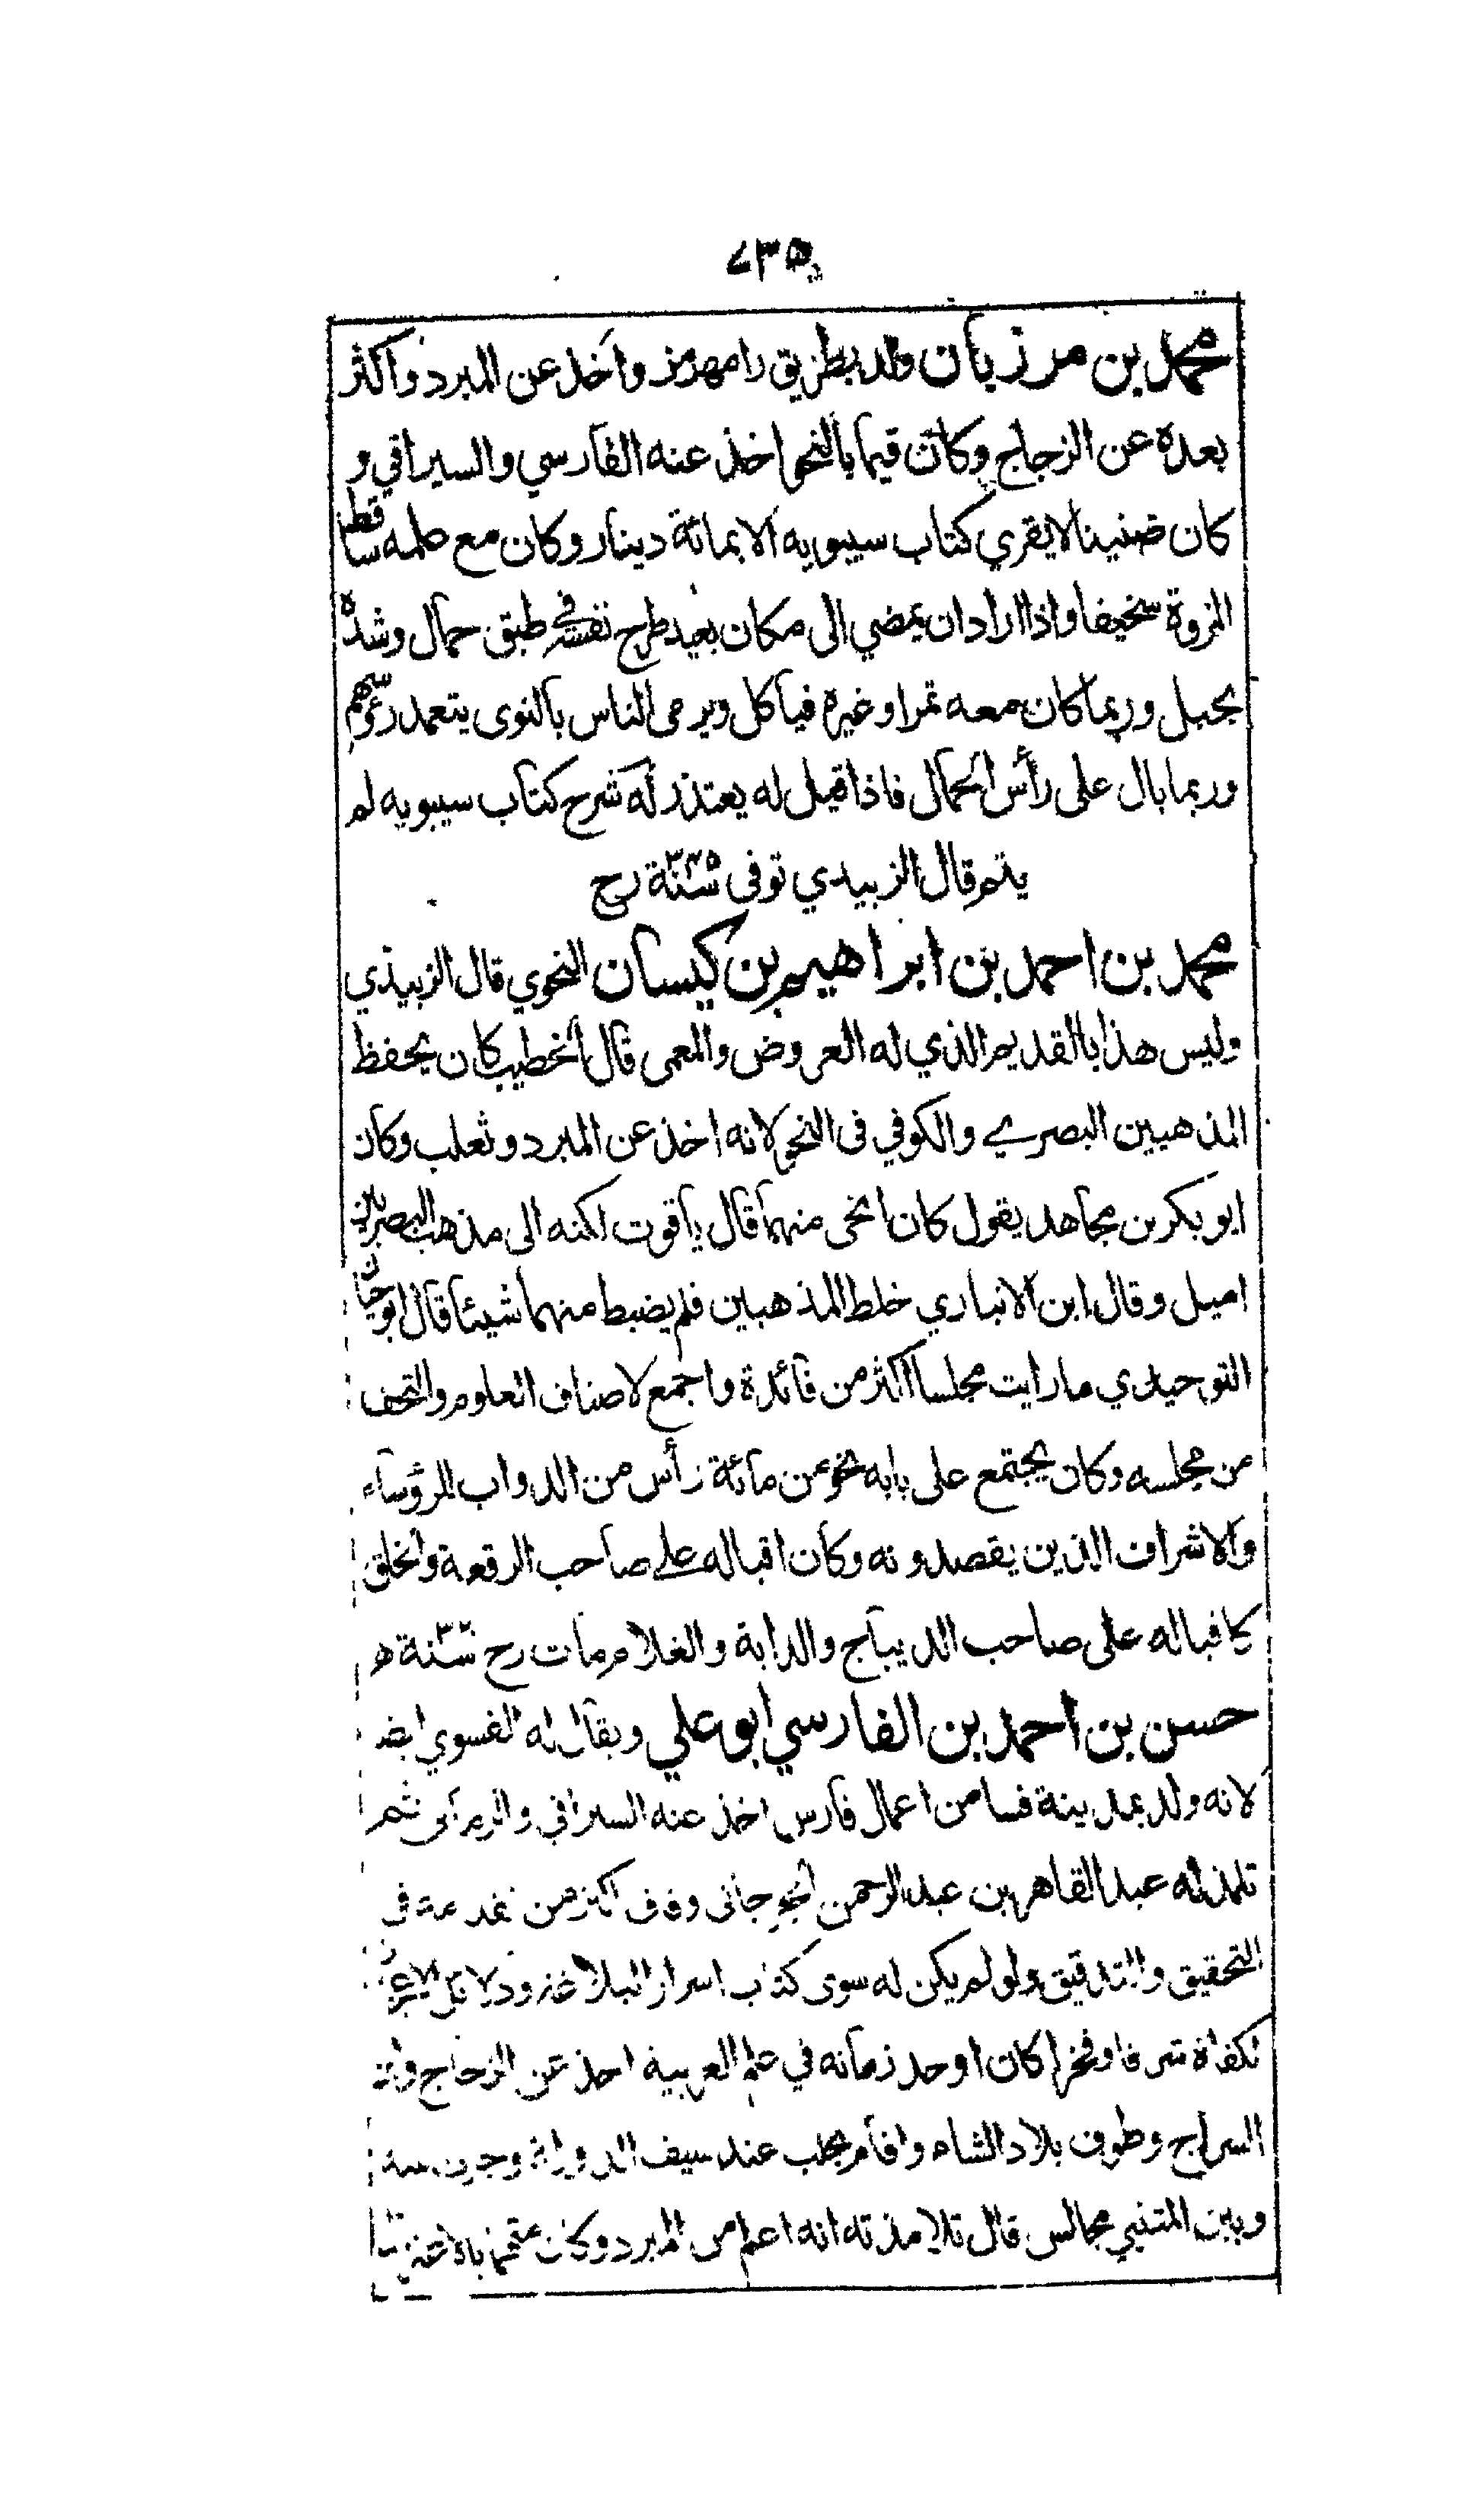 ٧٣٥
محمد بن مرزبان ولد بطريق رامهرمز واخذ عن المبرد واكثر
بعده عن الزجاج وكان قيما بالنحو اخذ عنه الفارسي والسيرافي و
كان ضنينا لا يقري كتاب سيبويه الا بمائة دينار وكان مع علمه ساقط
المروة سخيفا واذا اراد ان يمضي الى مكان بعيد طرح نفسه في طبق حمال وشده
بحبل وربما كان معه تمرا وغيره فياكل ويرمى الناس بالنوى يتعمد رءوسهم
وربما بال على رأس الحمال فاذا قيل له يعتذر له شرح كتاب سيبويه لم
يتم قال الزبيدي توفى سنة ٣٤٥ رح
محمد بن احمد بن ابراهيم بن كيسان النحوي قال الزبيدي
وليس هذا بالقديم الذي له العروض والمعمى قال الخطيب كان يحفظ
المذهبين البصري والكوفي فى النحو لانه اخذ عن المبرد وثعلب وكان
ابو بكر بن مجاهد يقول كان انحى منهما قال ياقوت لكنه الى مذهب البصريين
اميل وقال ابن الانباري خلط المذهبين فلم يضبط منهما شيئا قال ابو حيان
التوحيدي ما رايت مجلسا اكثر من فائدة واجمع لاصناف العلوم والتحف
من مجلسه وكان يجتمع على بابه نحو من مائة رأس من الدواب للرؤساء
والاشراف الذين يقصدونه وكان اقباله على صاحب الرقعة والخلق
كاقباله على صاحب الديباج والدابة والغلام مات رح سنة
حسن بن احمد بن الفارسي ابو علي ويقال له الفسوي ايضا
لانه ولد بمدينة فسا من اعمال فارس اخذ عنه السيرافي والرمانى ثم
تلمذ له عبد القاهر بن عبد الرحمن الجرجانى وفاق اكثر من تقدمه فى
التحقيق والتدقيق ولو لم يكن له سوى كتاب اسرار البلاغة ودلائل الاعجاز
لكفاه شرفا وفخرا كان اوحد زمانه في علم العربية اخذ عن الزجاج وابن
السراج وطوف بلاد الشام واقام بحلب عند سيف الدولة وجرت بينه
وبين المتنبي مجالس قال تلامذته انه اعلم من المبرد وكان متهما بالاعتزال